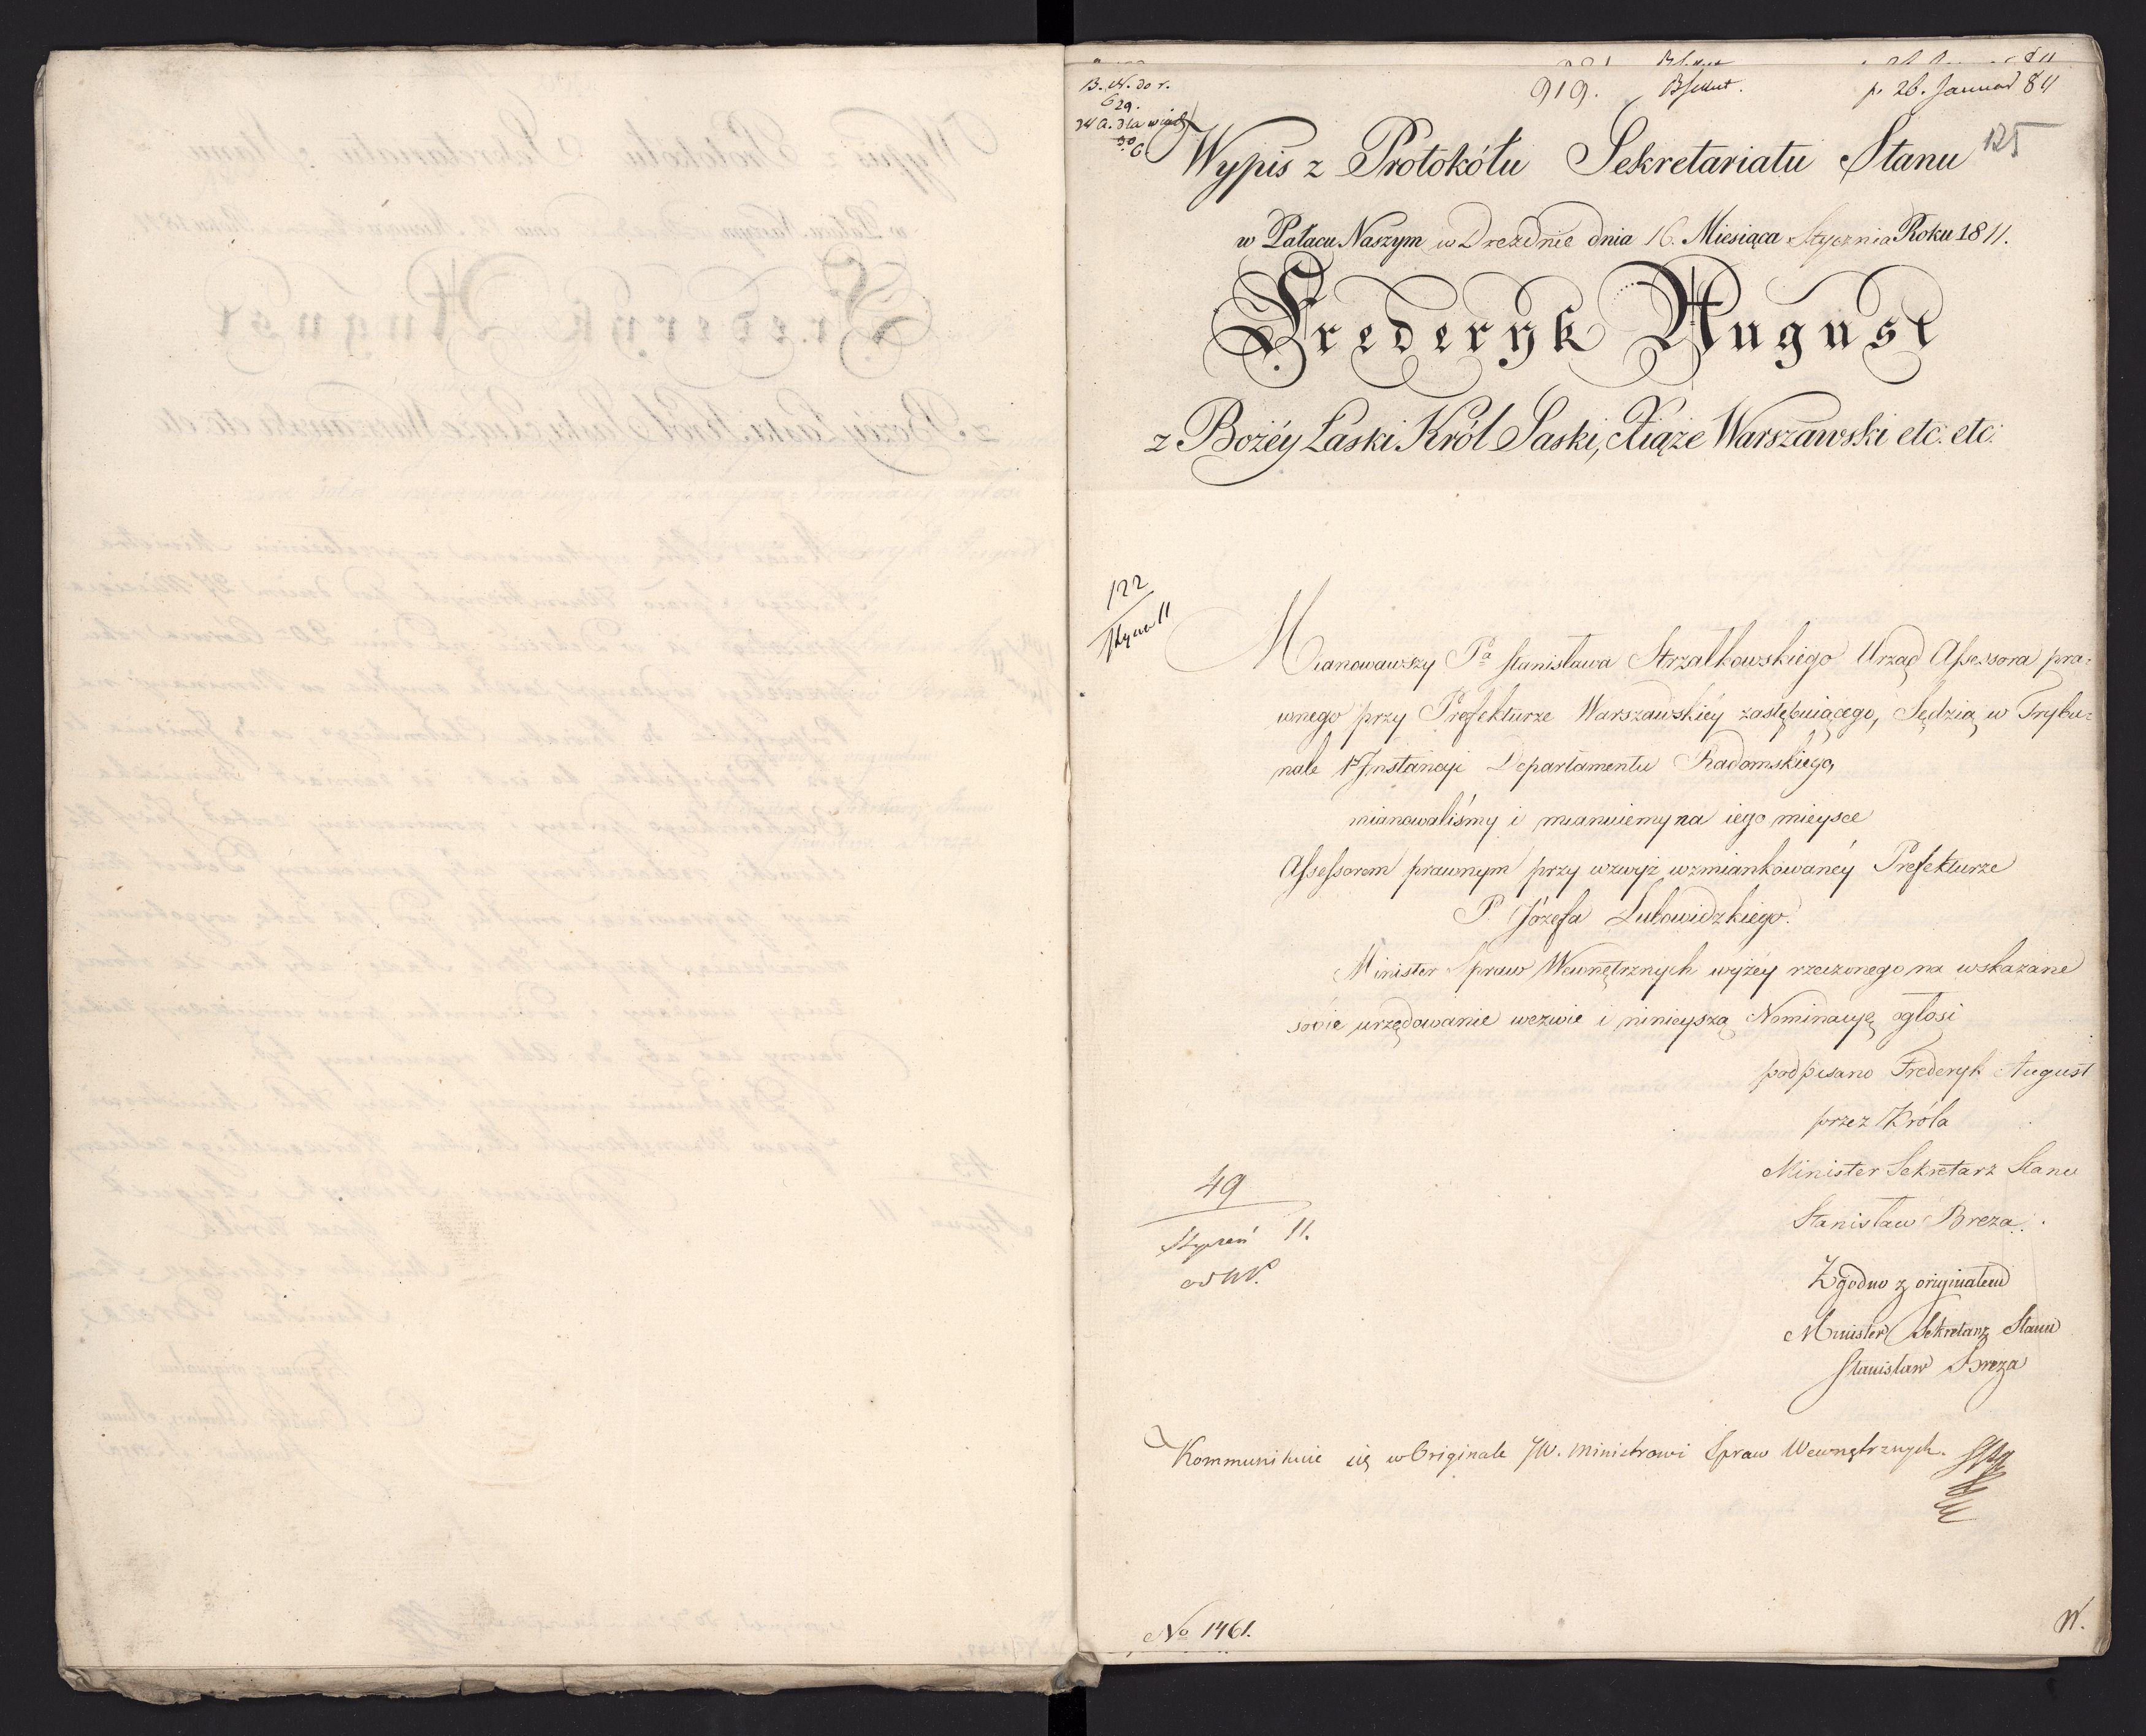 B. W. do r.
629.
919.
p. 26. Januar 811
125
Wypis z Protokółu Sekretariatu Stanu
w Pałacu Naszym w Dreźnie dnia 16. Miesiąca Stycznia Roku 1811.
Frederyk August
z Bożéy Łaski Król Saski, Xiąże Warszawski etc. etc.
122
Mianowawszy Pa Stanisława Strzałkowskiego Urząd Assessora pra=
wnego przy Prefekturze Warszawskiéy zastępuiącego, Sędzią w Trybu=
nale 1 Instancyi Departamentu Radomskiego,
mianowaliśmy i mianuiemy na iego mieysce
Assessorem prawnym przy wzwyż wzmiankowanéy Prefekturze
P Józefa Lubowidzkiego.
Minister Spraw Wewnętrznych wyżéy rzeczonego na wskazane
sobie urzędowanie wezwie i ninieyszą Nominacyę ogłosi
podpisano Frederyk August
przez Króla
Minister Sekretarz Stanu
Stanisław Breza.
49
Styczeń 11.
Zgodno z originałem
Minister Sekretarz Stanu
Stanisław Breza
Kommunikuie się w Originale JW. Ministrowi Spraw Wewnętrznych.
No 1461.
W.